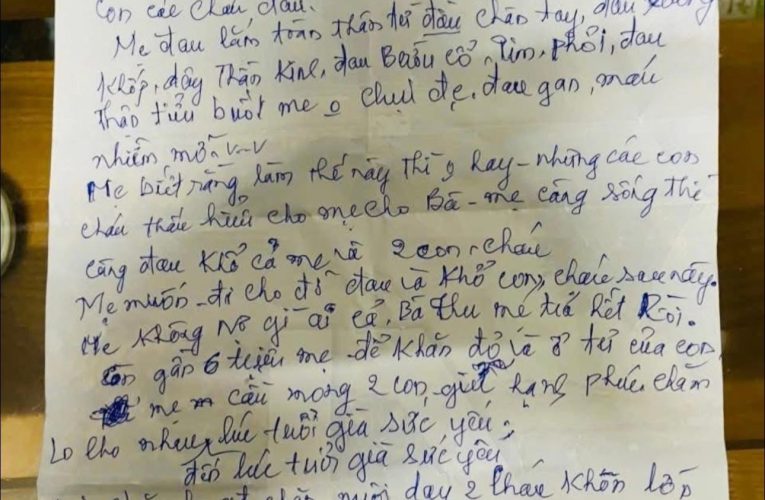 con các cháu đau.
Mẹ đau lắm toàn thân từ đầu chân tay, đau xương
khớp, dây Thần Kinh, đau Bướu cổ, Tim, phổi, đau
Tháo tiểu buốt mẹ o chịu đc, đau gan, máu
nhiễm mỡ v-v
Mẹ biết rằng, làm thế này thì o hay - những các con
cháu thấu hiểu cho mẹ cho Bà - mẹ càng sống thì
càng đau khổ cả mẹ và 2 con, cháu
Mẹ muốn đi cho đỡ đau và khổ con, cháu sau này.
Mẹ không nợ gì ai cả, Bà thu mẹ trả hết Rồi.
Còn gần 6 triệu mẹ để khăn đỏ và ở tủ của con,
mẹ cầu mong 2 con giữ hạnh phúc chăm
Lo cho nhau lúc tuổi già sức yếu,
đến lúc tuổi già sức yếu
nuôi dạy 2 cháu khôn lớn